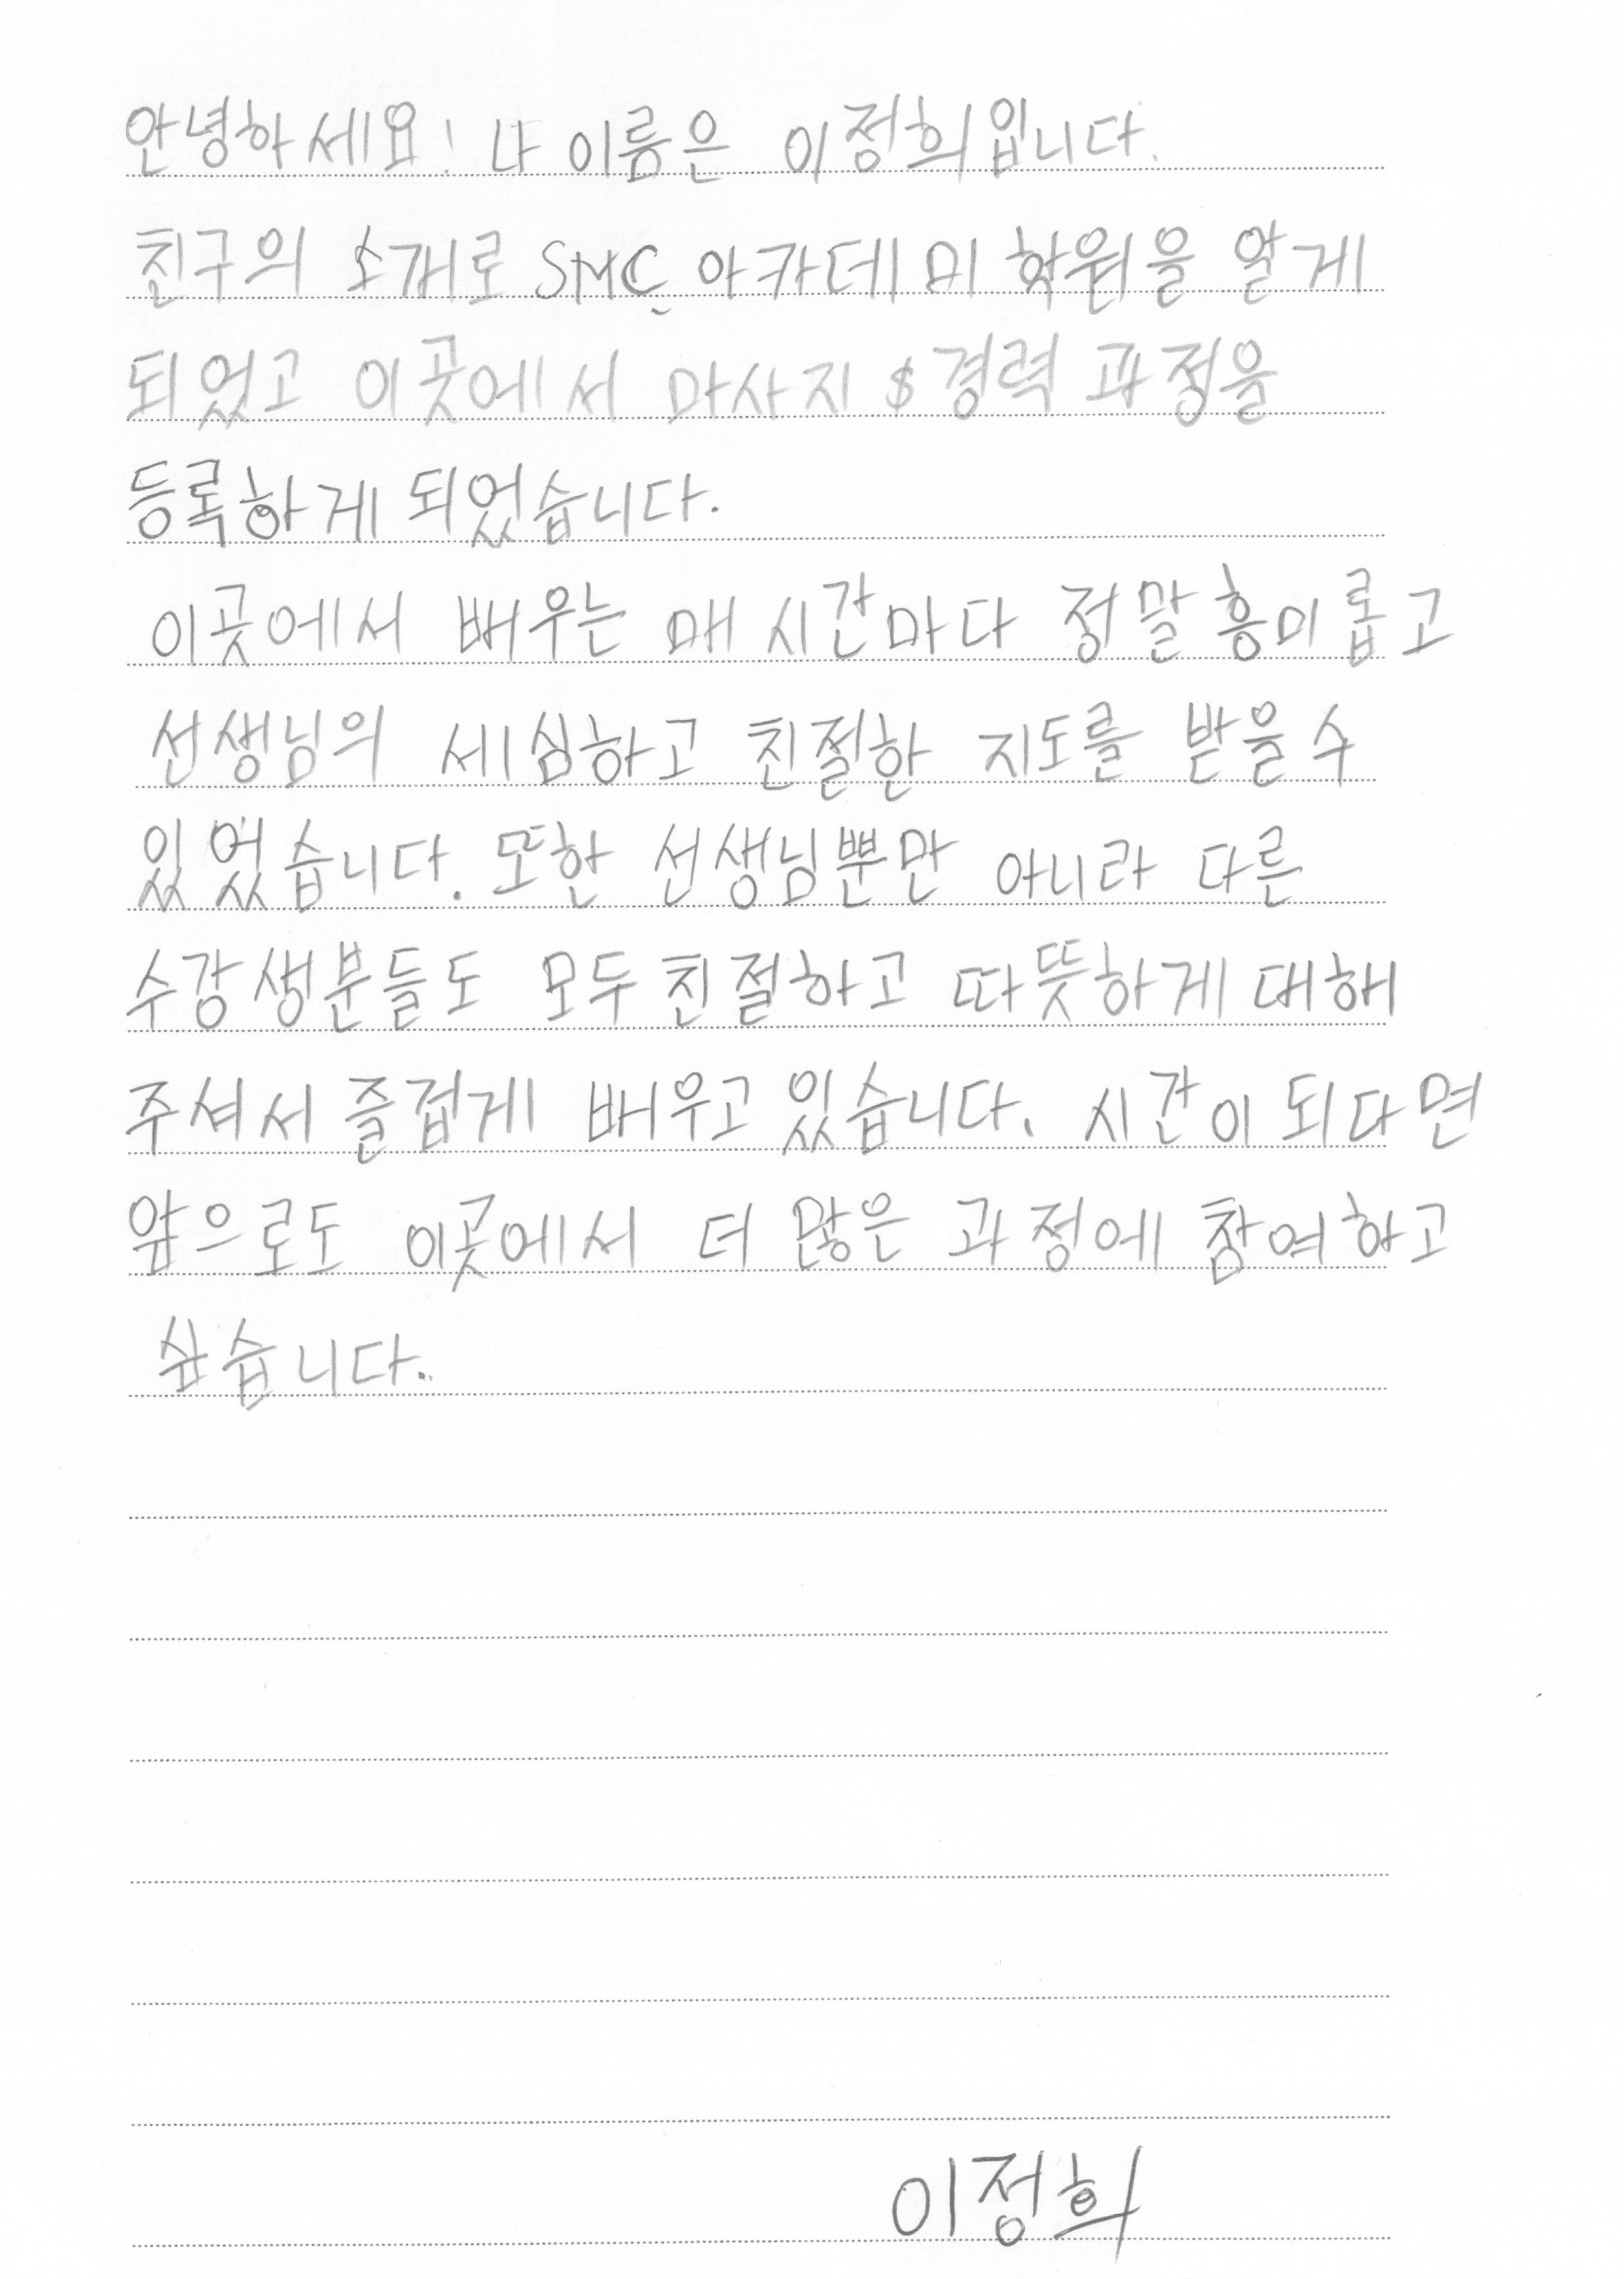 안녕하세요! 나 이름은 이정희입니다.
친구의 소개로 SMC 아카데미 학원을 알게
되었고 이곳에서 마사지 $ 경력 과정을
등록하게 되었습니다.
이곳에서 배우는 매 시간마다 정말 흥미롭고
선생님의 세심하고 친절한 지도를 받을 수
있었습니다. 또한 선생님뿐만 아니라 다른
수강생분들도 모두 친절하고 따뜻하게 대해
주셔서 즐겁게 배우고 있습니다. 시간이 되다면
앞으로도 이곳에서 더 많은 과정에 참여하고
싶습니다.
이정희